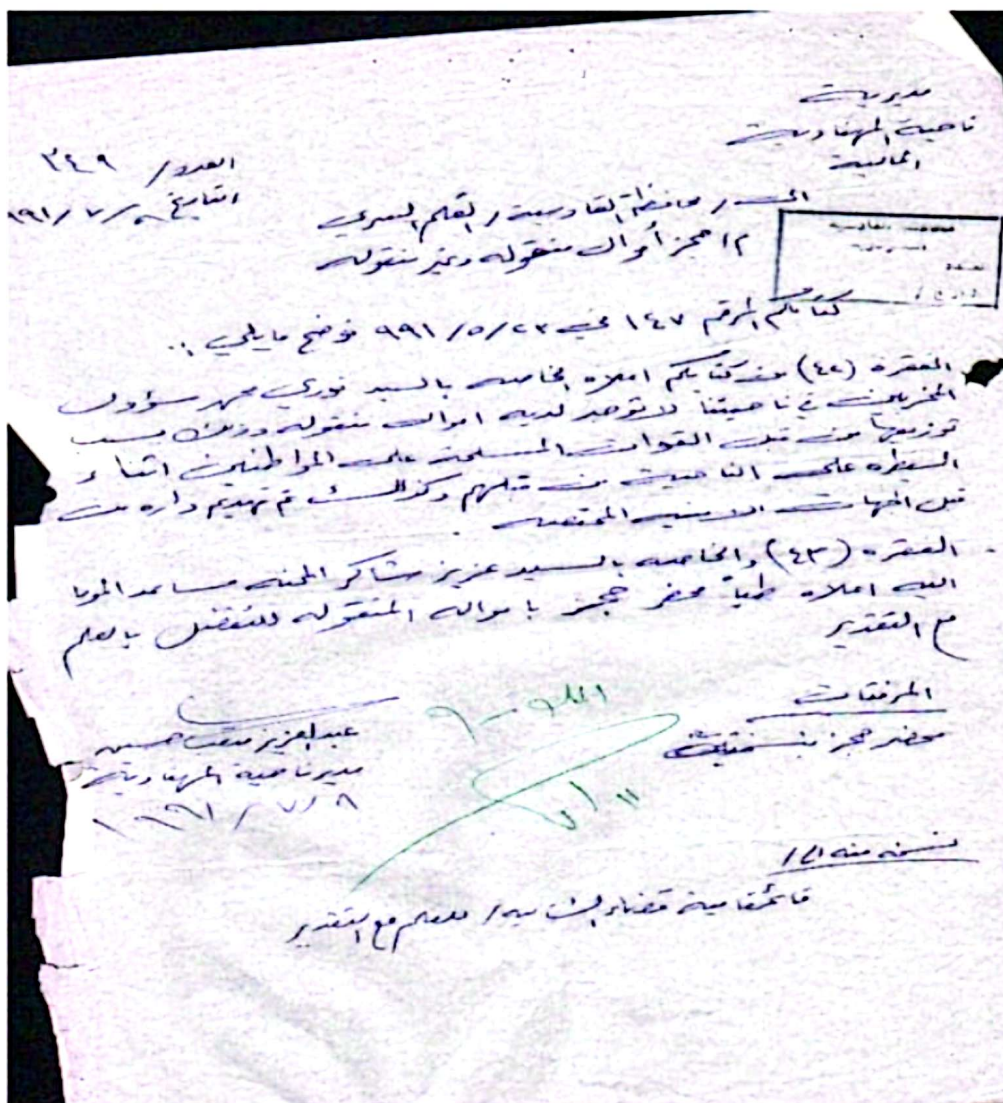 مديرية
ناحية المهناوية
المالية
العدد / ٣٤٩
التاريخ ٨ / ٧ / ٩٩١
الى / محافظة القادسية / القلم السري
م / حجز أموال منقوله وغير منقوله
كتابكم المرقم ١٤٧ في ٢٣ / ٥ / ٩٩١ نوضح مايلي ..
الفقره (٤٢) من كتابكم اعلاه الخاصه بالسيد نوري مسؤول
المخربين في ناحيتنا لاتوجد لديه اموال منقوله وذلك بسبب
توزيعها من قبل القوات المسلحة على المواطنين اثناء
السيطره على الناحية من قبلهم وكذالك تم تهديم داره من
قبل الجهات الامنيه المختصه .
الفقره (٤٣) والخاصه بالسيد عزيز شاكر مساعد الموما
اليه اعلاه طياً محضر حجز باموالة المنقوله للتفضل بالعلم
مع التقدير
المرفقات
محضر حجز بنسختين
عبد العزيز حسين
مدير ناحية المهناوية
٨ / ٧ / ١٩٩١
نسخه منه الى /
قائمقامية قضاء الشاميه / للعلم مع التقدير